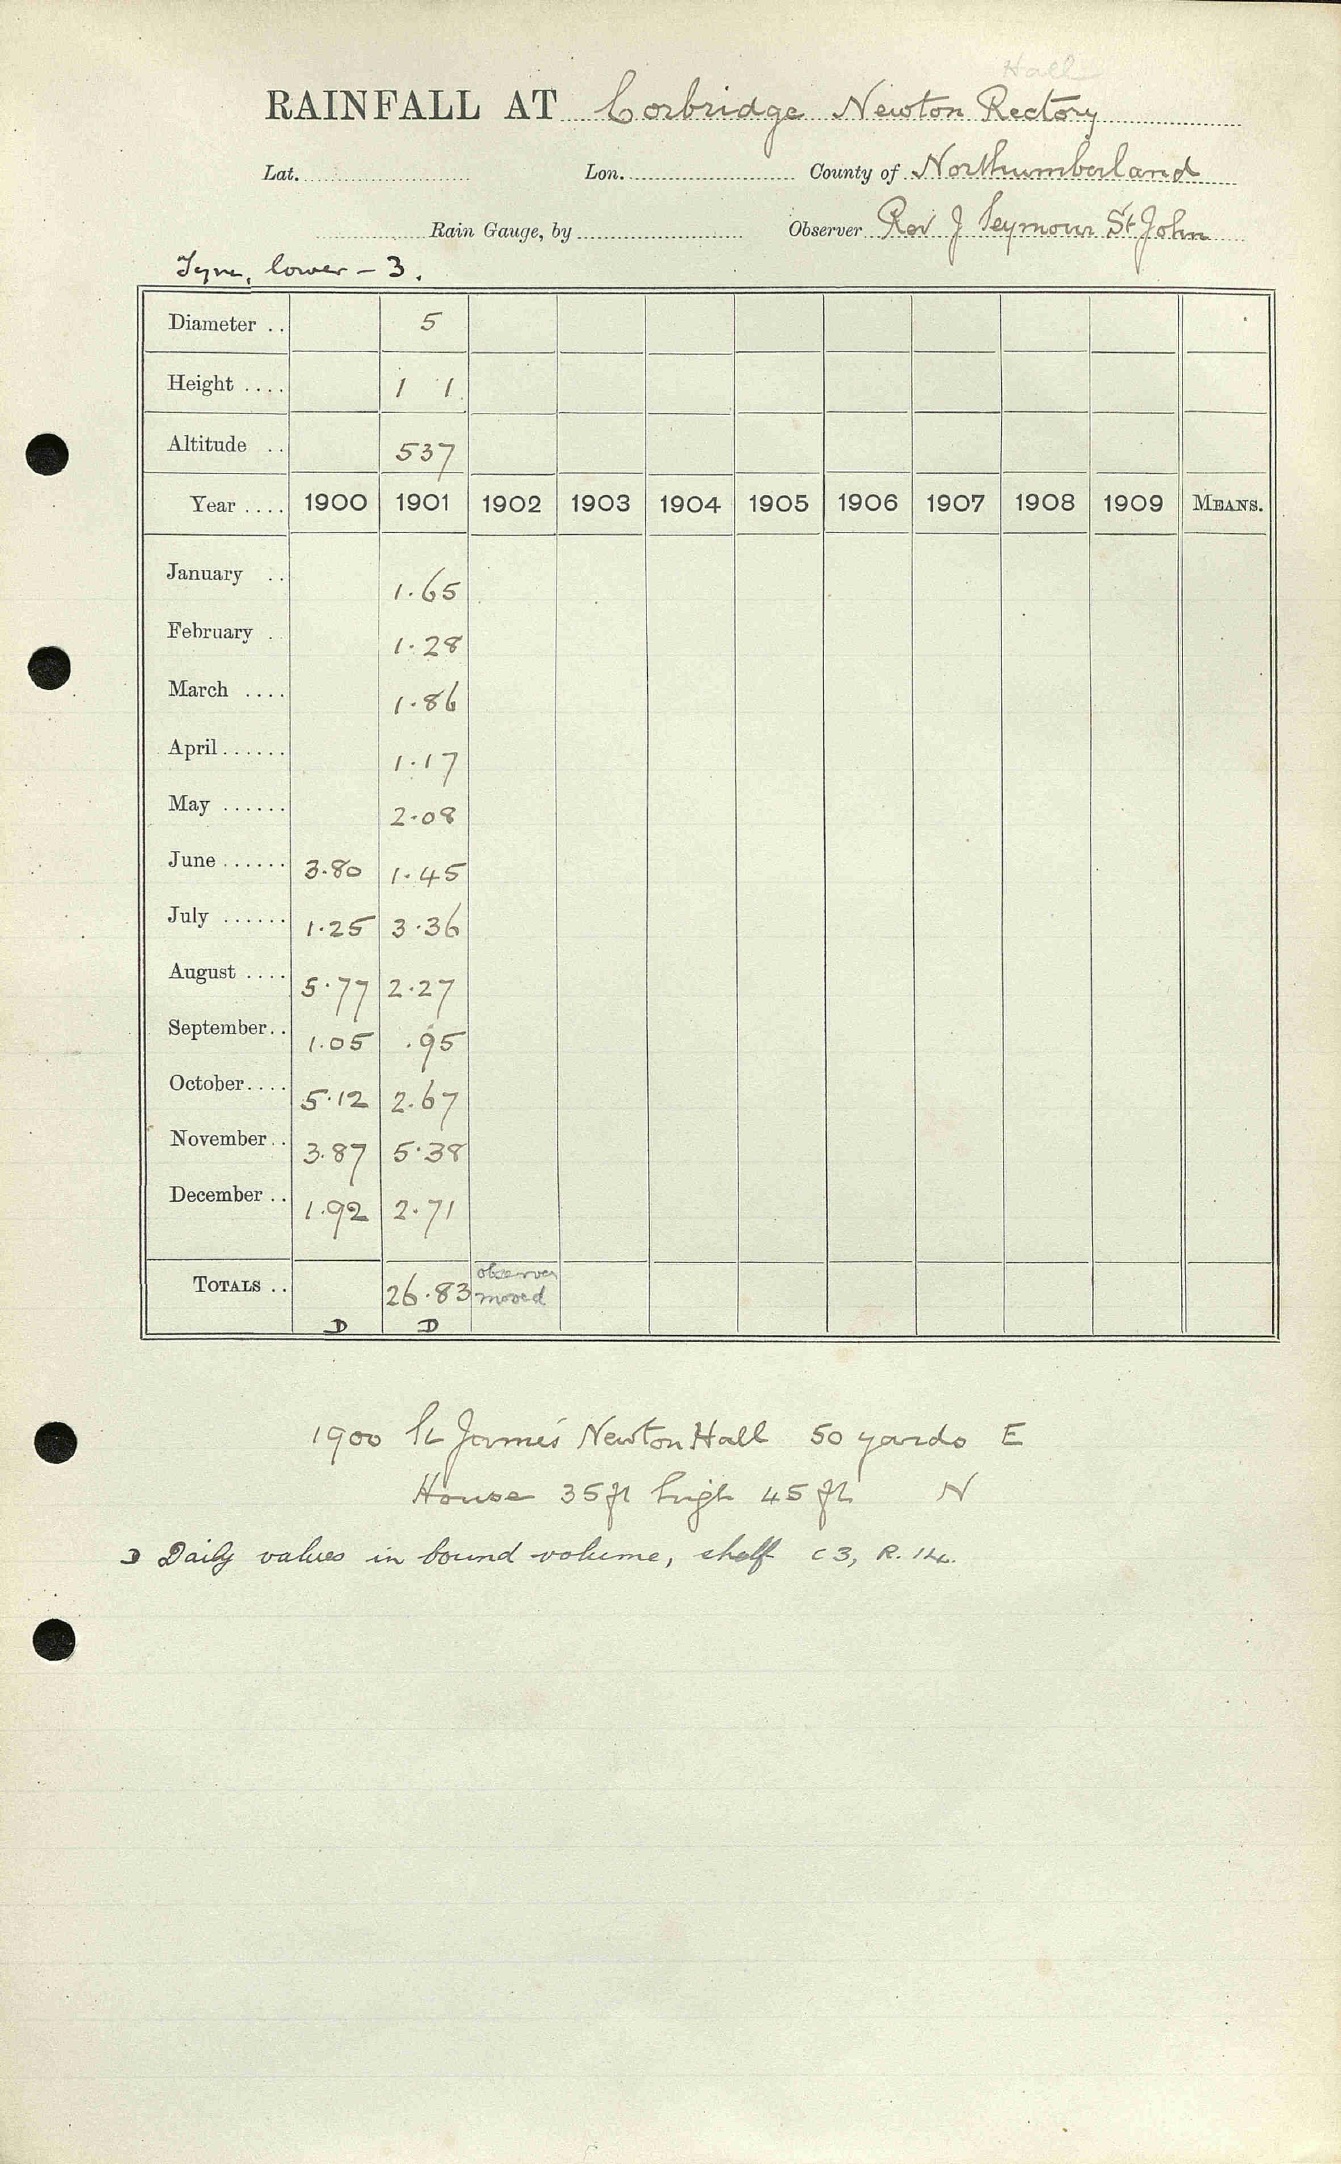 Hall
RAINFALL AT Corbridge Newton Rectory
Lat. Lon. County of Northumberland
Rain Gauge, by Observer Rev J Seymour St John
Tyne, lower - 3.
Diameter .. 5
Height .... 1 1
Altitude .. 537
Year .... 1900 1901 1902 1903 1904 1905 1906 1907 1908 1909 MEANS.
January .. 1.65
February . 1.28
March .... 1.86
April ...... 1.17
May ...... 2.08
June ...... 3.80 1.45
July ...... 1.25 3.36
August .... 5.77 2.27
September .. 1.05 .95
October .... 5.12 2.67
November .. 3.87 5.38
December .. 1.92 2.71
TOTALS .. 26.83 observer moved
D D
1900 St James' Newton Hall 50 yards E
House 35 ft high 45 ft N
D Daily values in bound volume, shelf C3, R. 14.